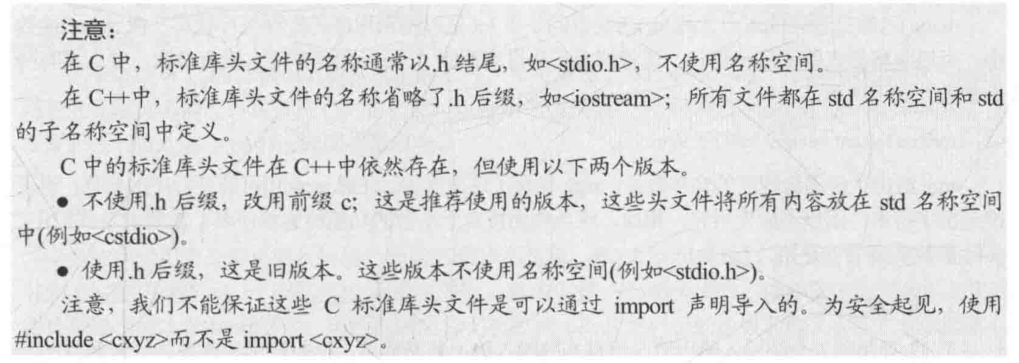 注意：
在 C 中，标准库头文件的名称通常以.h 结尾，如<stdio.h>，不使用名称空间。
在 C++中，标准库头文件的名称省略了.h 后缀，如<iostream>；所有文件都在 std 名称空间和 std
的子名称空间中定义。
C 中的标准库头文件在 C++中依然存在，但使用以下两个版本。
● 不使用.h 后缀，改用前缀 c；这是推荐使用的版本，这些头文件将所有内容放在 std 名称空间
中(例如<cstdio>)。
● 使用.h 后缀，这是旧版本。这些版本不使用名称空间(例如<stdio.h>)。
注意，我们不能保证这些 C 标准库头文件是可以通过 import 声明导入的。为安全起见，使用
#include <cxyz>而不是 import <cxyz>。